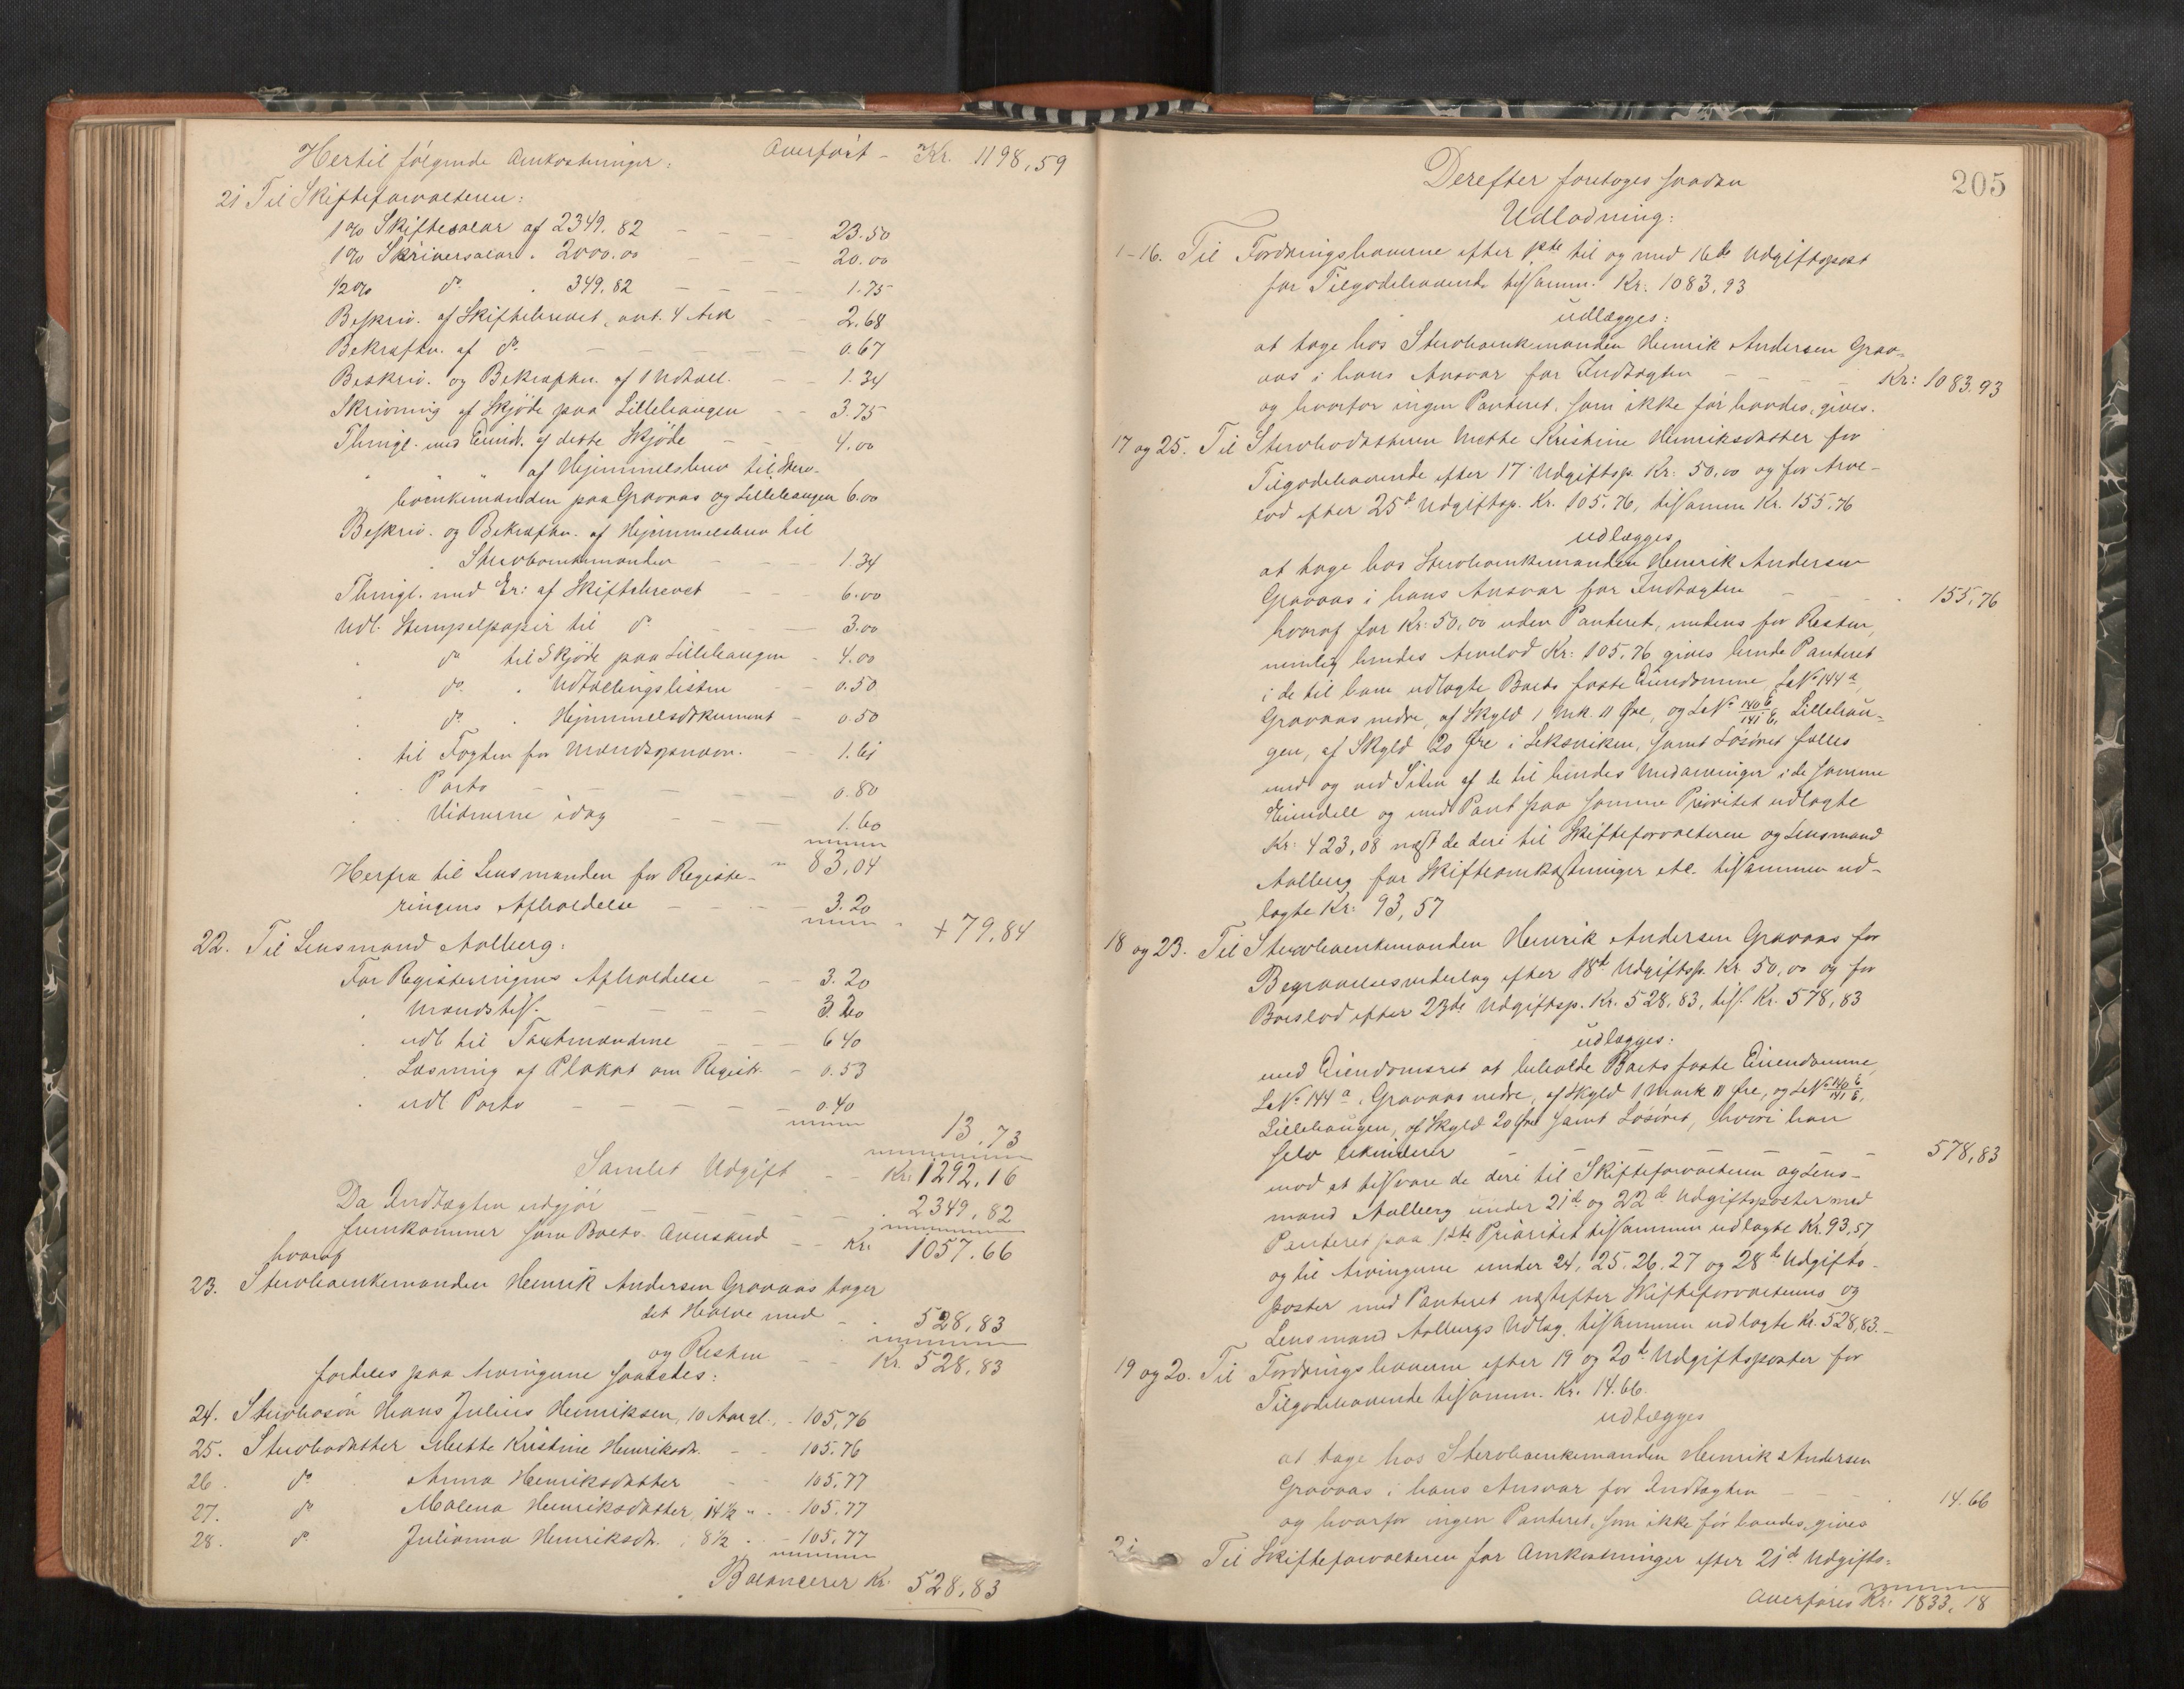 Hertil følgende Omkostninger: Overført - Kr. 1198,59
21 Til Skifteforvalteren:
1% Skiftesalær af 2349.82 - - - 23.50
1% Skriversalær „ 2000.00 - - - 20.00
1/2% do „ 349.82 - - - 1.75
Beskriv. af Skiftebrevet, ant. 4 Ark - - 2.68
Bekræftn. af do - - - - 0.67
Beskriv. og Bekræftn. af 1 Udtall. - - 1.34
Skrivning af Skjøde paa Lillehaugen - - 3.75
Thingl. med Eiend. af dette Skjøde - - 4.00
„ „ af Hjemmelsbrev til Sterv-
boenkemanden paa Gravaas og Lillehaugen 6.00
Beskriv. og Bekræftn. af Hjemmelsbrev til
Stervboenkemanden - - - 1.34
Thingl. med Er: af Skiftebrevet - - 6.00
Udl. Stempelpapir til do - - - 3.00
„ do til Skjøde paa Lillehaugen - 4.00
„ do „ Udtællingslisten - - 0.50
„ do „ Hjemmelsdokument - 0.50
„ til Fogden for Mandsopnævn. - 1.61
„ „ Porto - - - - 0.80
„ „ Vidnerne idag - - - 1.60
83,04
Herfra til Lensmanden for Registe-
ringens Afholdelse - - - 3.20
+79,84
22. Til Lensmand Aalberg:
For Registeringens Afholdelse - - 3.20
„ Mandstils. - - - - 3.20
„ udl. til Taxtmændene - - - 6 40
„ Læsning af Plakat om Registr. - 0.53
„ udl Porto - - - - - 0.40
13,73
Samlet Udgift - - Kr: 1292,16
Da Indtægten udgjør - - - - 2349,82
fremkommer som Boets Avnskud - - Kr. 1057.66
hvoraf
23. Stervboenkemanden Henrik Andersen Gravaas tager
det Halve med - - 528,83
og Resten - - Kr. 528,83
fordeles paa Arvingerne saaledes:
24. Stervbosøn Hans Julius Henriksen, 10 Aar gl., - 105,76
25. Stervbodatter Mette Kristine Henriksdr. - - 105.76
26. do Anna Henriksdatter - 105,77
27. do Malena Henriksdatter, 14½ „ - 105,77
28. do Julianna Henriksdr. , 8½ „ - 105,77
Balancerer Kr. 528,83
205
Derefter foretoges saadan
Udlodning:
1-16. Til Fordringshaverne efter 1ste til og med 16de Udgiftspost
for Tilgodehavende tilsamm. Kr. 1083,93
udlægges:
at tage hos Stervboenkemanden Henrik Andersen Grav-
aas i hans Ansvar for Indtægten - - - - Kr: 1083.93
og hvorfor ingen Panteret, som ikke før havdes, gives.
17 og 25. Til Stervbodatteren Mette Kristine Henriksdatter for
Tilgodehavende efter 17 Udgiftsp. Kr: 50,00 og for Arve-
lod efter 25de Udgiftsp. Kr. 105,76, tilsamm Kr. 155,76
udlægges
at tage hos Stervboenkemanden Henrik Andersen
Gravaas i hans Ansvar for Indtægten - - - 155,76
hvoraf for Kr: 50,00 uden Panteret, medens for Resten,
nemlig hendes Arvelod Kr: 105,76, gives hende Panteret
i de til ham udlagte Boets faste Eiendomme LNo 144a,
Gravaas nedre, af Skyld 1 Mk. 11 Øre, og LNo 140b/141b, Lillehau-
gen, af Skyld 20 Øre i Leksviken, samt Løsøret fælles
med og ved Siden af de til hendes Medarvinger i de samme
Eiendele og med Pant paa samme Prioritet udlagte
Kr: 423,08 næst de deri til Skifteforvalteren og Lensmand
Aalberg for Skifteomkostninger etc. tilsammen ud-
lagte Kr: 93,57
18 og 23. Til Stervboenkemanden Henrik Andersen Gravaas for
Begravelsesvederlag efter 18de Udgiftsp. Kr 50,00 og for
Boeslod efter 23de Udgiftsp. Kr. 528,83, tils. Kr. 578,83
udlægges:
med Eiendomsret at beholde Boets faste Eiendomme,
LNo 144a, Gravaas nedre, af Skyld 1 Mark 11 Øre, og LNo 140b/141b,
Lillehaugen, af Skyld 20 Øre samt Løsøret, hvori han
selv likviderer - - - - - 578,83
mod at tilsvare de deri til Skifteforvalteren og Lens-
mand Aalberg under 21de og 22de Udgiftsposter med
Panteret paa 1ste Prioritet tilsammen udlagte Kr. 93,57
og til Arvingerne under 24, 25. 26. 27 og 28de Udgifts-
poster med Panteret næstefter Skifteforvalterens og
Lensmand Aalbergs Udlæg, tilsammen udlagte Kr. 528,83.-
19 og 20. Til Fordringshaverne efter 19 og 20de Udgiftsposter for
Tilgodehavende tilsamm. Kr. 14.66.
udlægges
at tage hos Stervboenkemanden Henrik Andersen
Gravaas i hans Ansvar for Indtægten - - 14.66
og hvorfor ingen Panteret, som ikke før havdes, gives
21 Til Skifteforvalteren for Omkostninger efter 21de Udgifts-
Overføres Kr: 1833,18